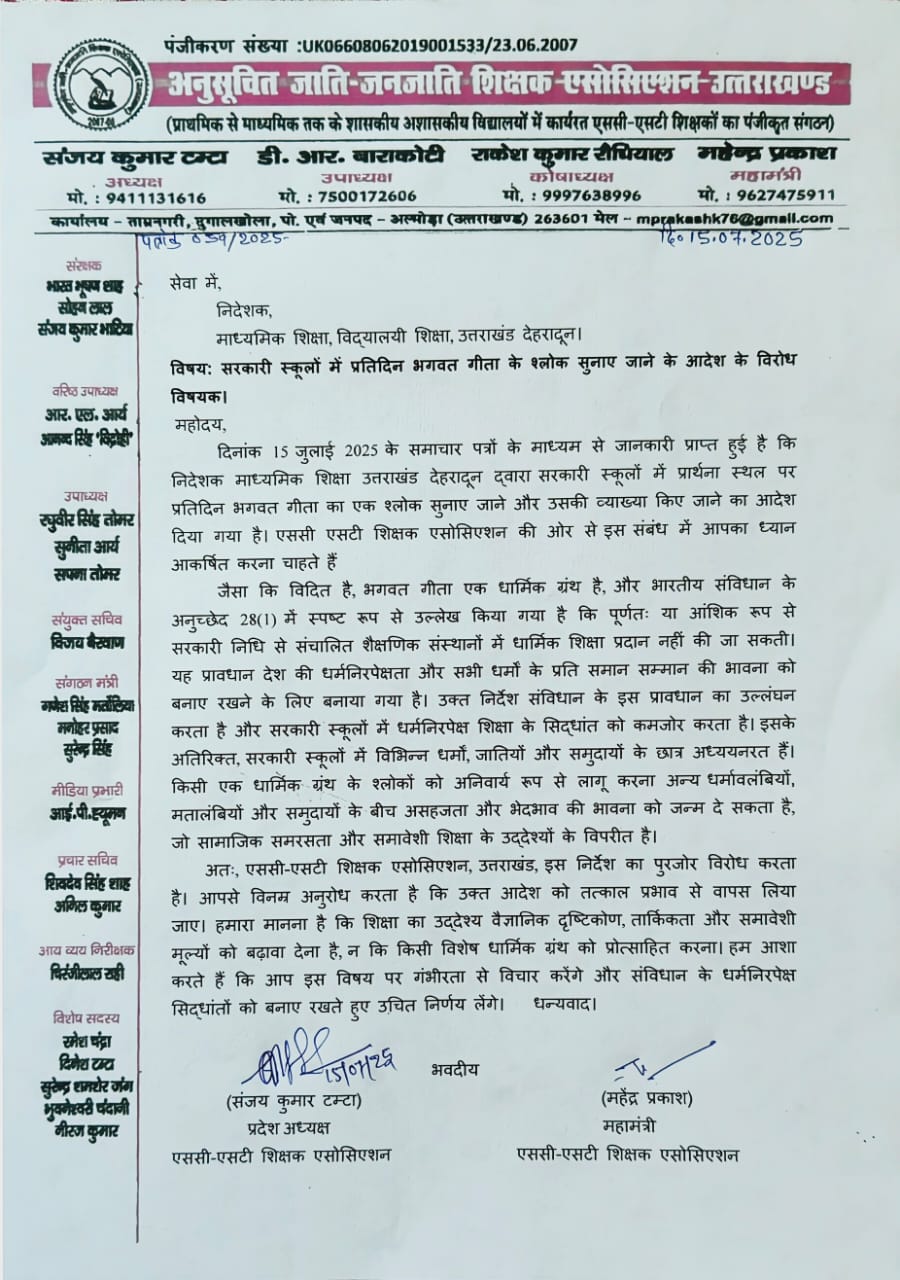 पंजीकरण संख्या :UK06608062019001533/23.06.2007
अनुसूचित जाति-जनजाति शिक्षक एसोसिएशन-उत्तराखण्ड
(प्राथमिक से माध्यमिक तक के शासकीय अशासकीय विद्यालयों में कार्यरत एससी-एसटी शिक्षकों का पंजीकृत संगठन)
संजय कुमार टम्टा डी. आर. बाराकोटी राकेश कुमार रौथियाल महेन्द्र प्रकाश
अध्यक्ष उपाध्यक्ष कोषाध्यक्ष महामंत्री
मो. : 9411131616 मो. : 7500172606 मो. : 9997638996 मो. : 9627475911
कार्यालय – ताम्रनगरी, दुगालखोला, पो. एवं जनपद – अल्मोड़ा (उत्तराखण्ड) 263601 मेल – mprakashk76@gmail.com
पत्रांक /2025- दि० 15.07.2025
संरक्षक
भारत भूषण शाह
सोहन लाल
संजय कुमार भाटिया
वरिष्ठ उपाध्यक्ष
आर. एल. आर्य
आनन्द सिंह 'विद्रोही'
उपाध्यक्ष
रघुवीर सिंह तोमर
सुनीता आर्य
सपना तोमर
संयुक्त सचिव
विजय बैरवाण
संगठन मंत्री
गणेश सिंह मर्तोलिया
मनोहर प्रसाद
सुरेन्द्र सिंह
मीडिया प्रभारी
आई.पी.ह्यूमन
प्रचार सचिव
शिवदेव सिंह शाह
अनिल कुमार
आय व्यय निरीक्षक
चिरंजीलाल राही
विशेष सदस्य
रमेश चंद्रा
दिनेश टम्टा
सुरेन्द्र शमशेर जंग
भुवनेश्वरी चंदानी
नीरज कुमार
सेवा में,
निदेशक,
माध्यमिक शिक्षा, विद्यालयी शिक्षा, उत्तराखंड देहरादून।
विषय: सरकारी स्कूलों में प्रतिदिन भगवत गीता के श्लोक सुनाए जाने के आदेश के विरोध
विषयक।
महोदय,
दिनांक 15 जुलाई 2025 के समाचार पत्रों के माध्यम से जानकारी प्राप्त हुई है कि
निदेशक माध्यमिक शिक्षा उत्तराखंड देहरादून द्वारा सरकारी स्कूलों में प्रार्थना स्थल पर
प्रतिदिन भगवत गीता का एक श्लोक सुनाए जाने और उसकी व्याख्या किए जाने का आदेश
दिया गया है। एससी एसटी शिक्षक एसोसिएशन की ओर से इस संबंध में आपका ध्यान
आकर्षित करना चाहते हैं
जैसा कि विदित है, भगवत गीता एक धार्मिक ग्रंथ है, और भारतीय संविधान के
अनुच्छेद 28(1) में स्पष्ट रूप से उल्लेख किया गया है कि पूर्णतः या आंशिक रूप से
सरकारी निधि से संचालित शैक्षणिक संस्थानों में धार्मिक शिक्षा प्रदान नहीं की जा सकती।
यह प्रावधान देश की धर्मनिरपेक्षता और सभी धर्मों के प्रति समान सम्मान की भावना को
बनाए रखने के लिए बनाया गया है। उक्त निर्देश संविधान के इस प्रावधान का उल्लंघन
करता है और सरकारी स्कूलों में धर्मनिरपेक्ष शिक्षा के सिद्धांत को कमजोर करता है। इसके
अतिरिक्त, सरकारी स्कूलों में विभिन्न धर्मों, जातियों और समुदायों के छात्र अध्ययनरत हैं।
किसी एक धार्मिक ग्रंथ के श्लोकों को अनिवार्य रूप से लागू करना अन्य धर्मावलंबियों,
मतालंबियों और समुदायों के बीच असहजता और भेदभाव की भावना को जन्म दे सकता है,
जो सामाजिक समरसता और समावेशी शिक्षा के उद्देश्यों के विपरीत है।
अतः, एससी-एसटी शिक्षक एसोसिएशन, उत्तराखंड, इस निर्देश का पुरजोर विरोध करता
है। आपसे विनम्र अनुरोध करता है कि उक्त आदेश को तत्काल प्रभाव से वापस लिया
जाए। हमारा मानना है कि शिक्षा का उद्देश्य वैज्ञानिक दृष्टिकोण, तार्किकता और समावेशी
मूल्यों को बढ़ावा देना है, न कि किसी विशेष धार्मिक ग्रंथ को प्रोत्साहित करना। हम आशा
करते हैं कि आप इस विषय पर गंभीरता से विचार करेंगे और संविधान के धर्मनिरपेक्ष
सिद्धांतों को बनाए रखते हुए उचित निर्णय लेंगे। धन्यवाद।
15/07/25
भवदीय
(संजय कुमार टम्टा) (महेंद्र प्रकाश)
प्रदेश अध्यक्ष महामंत्री
एससी-एसटी शिक्षक एसोसिएशन एससी-एसटी शिक्षक एसोसिएशन